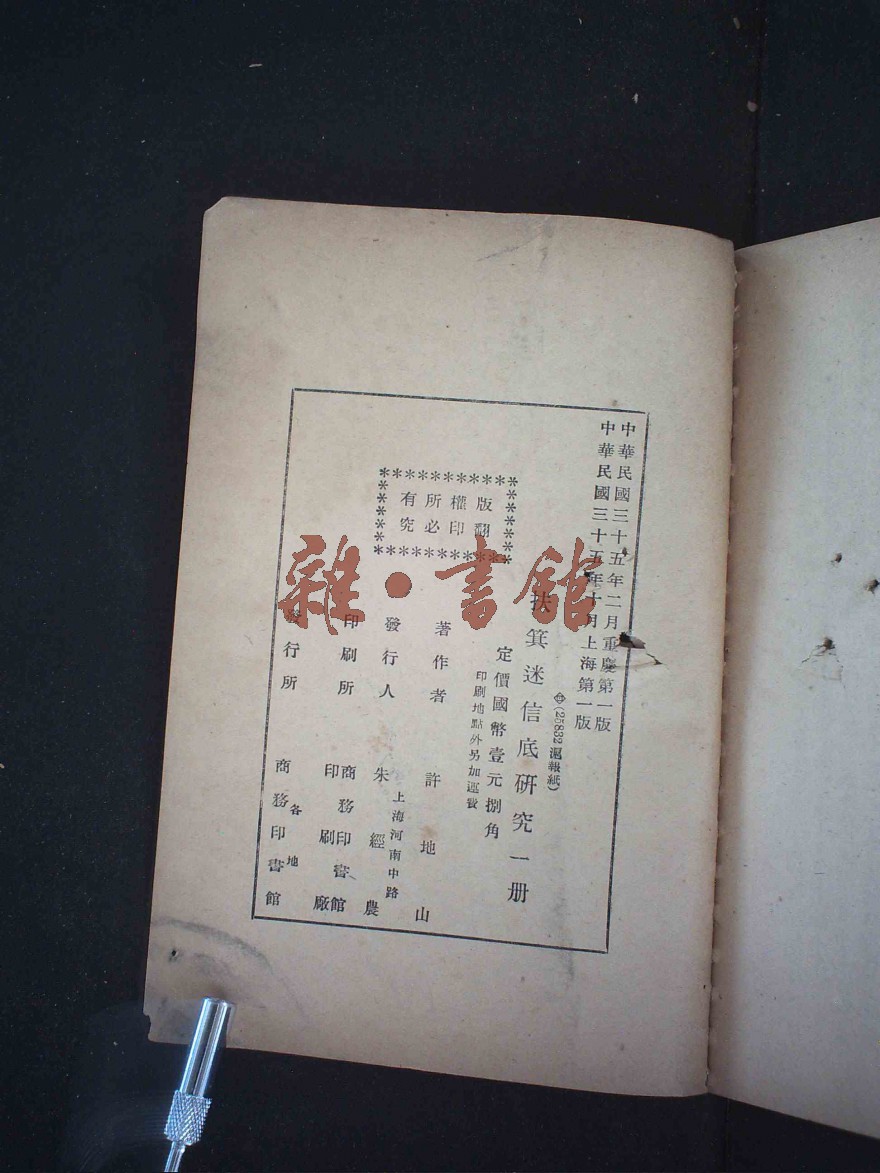 中華民國三十五年二月重慶第一版
中華民國三十五年十月上海第一版
(25832滬報紙)
扶箕迷信底研究一册
定價國幣壹元捌角
印刷地點外另加運費
版權所有
翻印必究
著作者 許地山
發行人 朱經農
上海河南中路
印刷所 商務印書館印刷廠
發行所 各地商務印書館
雜·書館